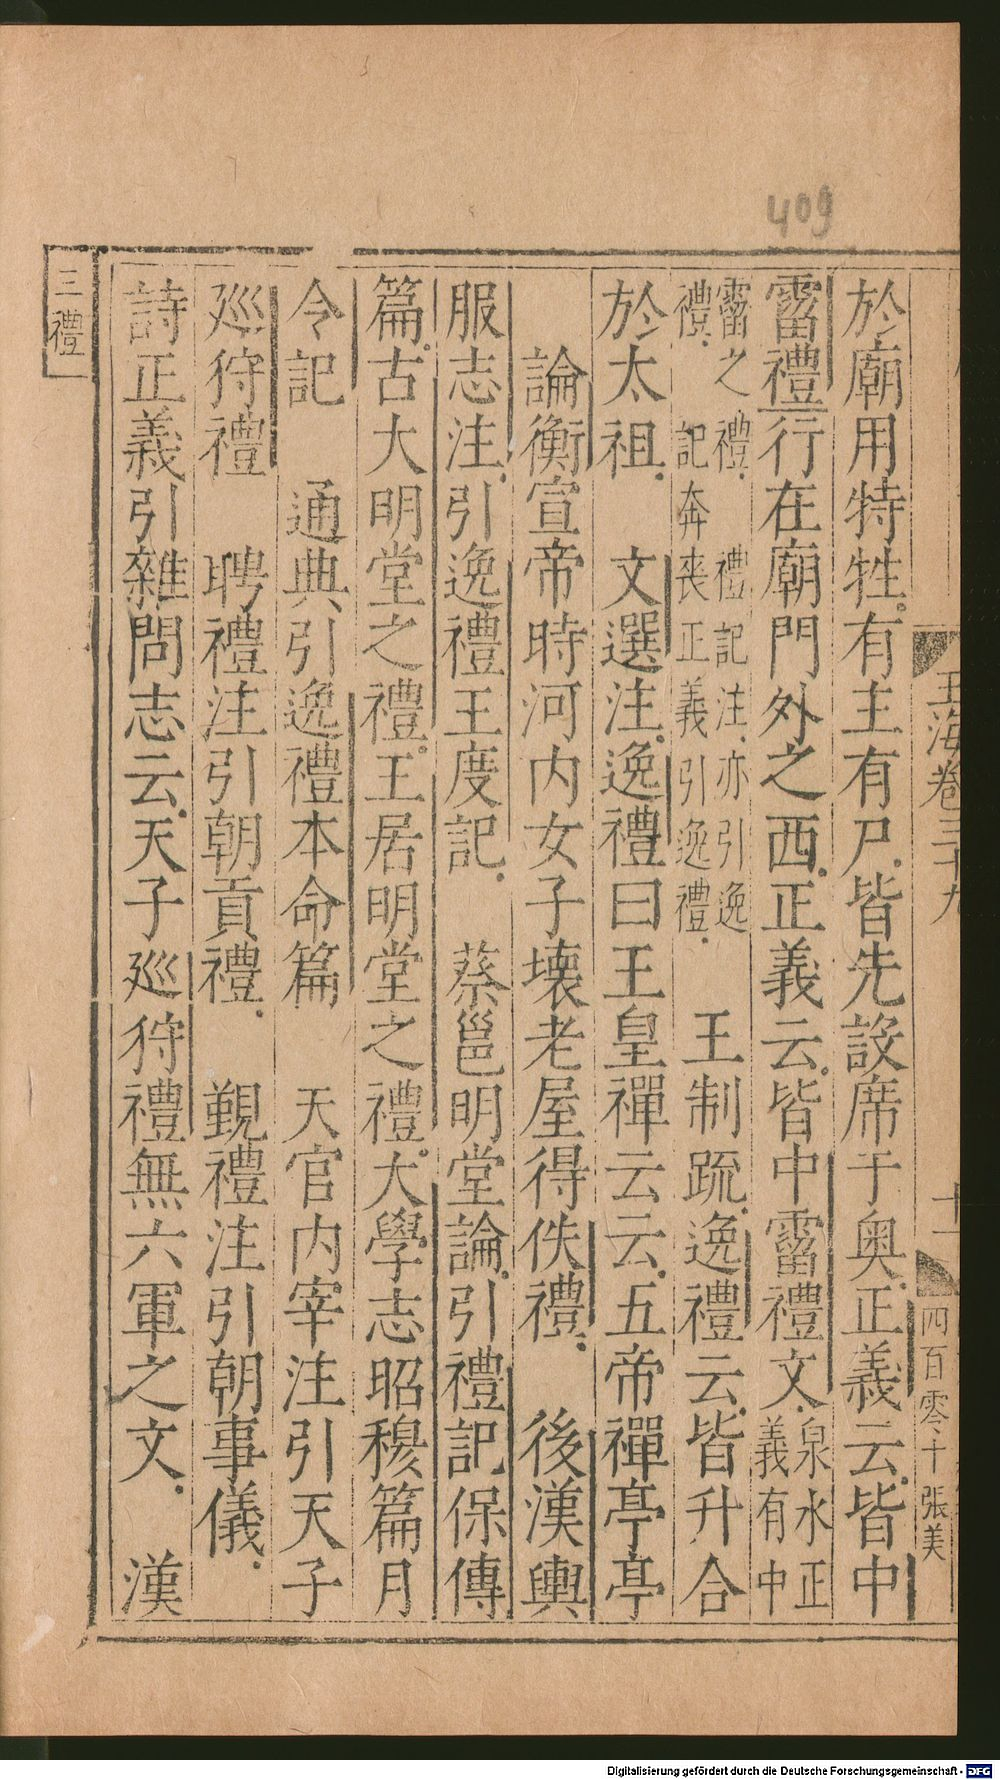 409
玉海卷三十九
十一
四百零十
張美
於廟用特牲有主有尸皆先設席于奥正義云皆中
霤禮行在廟門外之西正義云皆中霤禮文泉水正義有中
霤之禮禮記注亦引逸禮記奔喪正義引逸禮 王制䟽逸禮云皆升合
於太祖 文選注逸禮曰王皇禪云云五帝禪亭亭
論衡宣帝時河内女子壊老屋得佚禮 後漢輿
服志注引逸禮王度記 蔡邕明堂論引禮記保傳
篇古大明堂之禮王居明堂之禮大學志昭穆篇月
令記 通典引逸禮本命篇 天官内宰注引天子
廵狩禮 聘禮注引朝貢禮 覲禮注引朝事儀
詩正義引雜問志云天子廵狩禮無六軍之文 漢
三禮
Digitalisierung gefördert durch die Deutsche Forschungsgemeinschaft - DFG